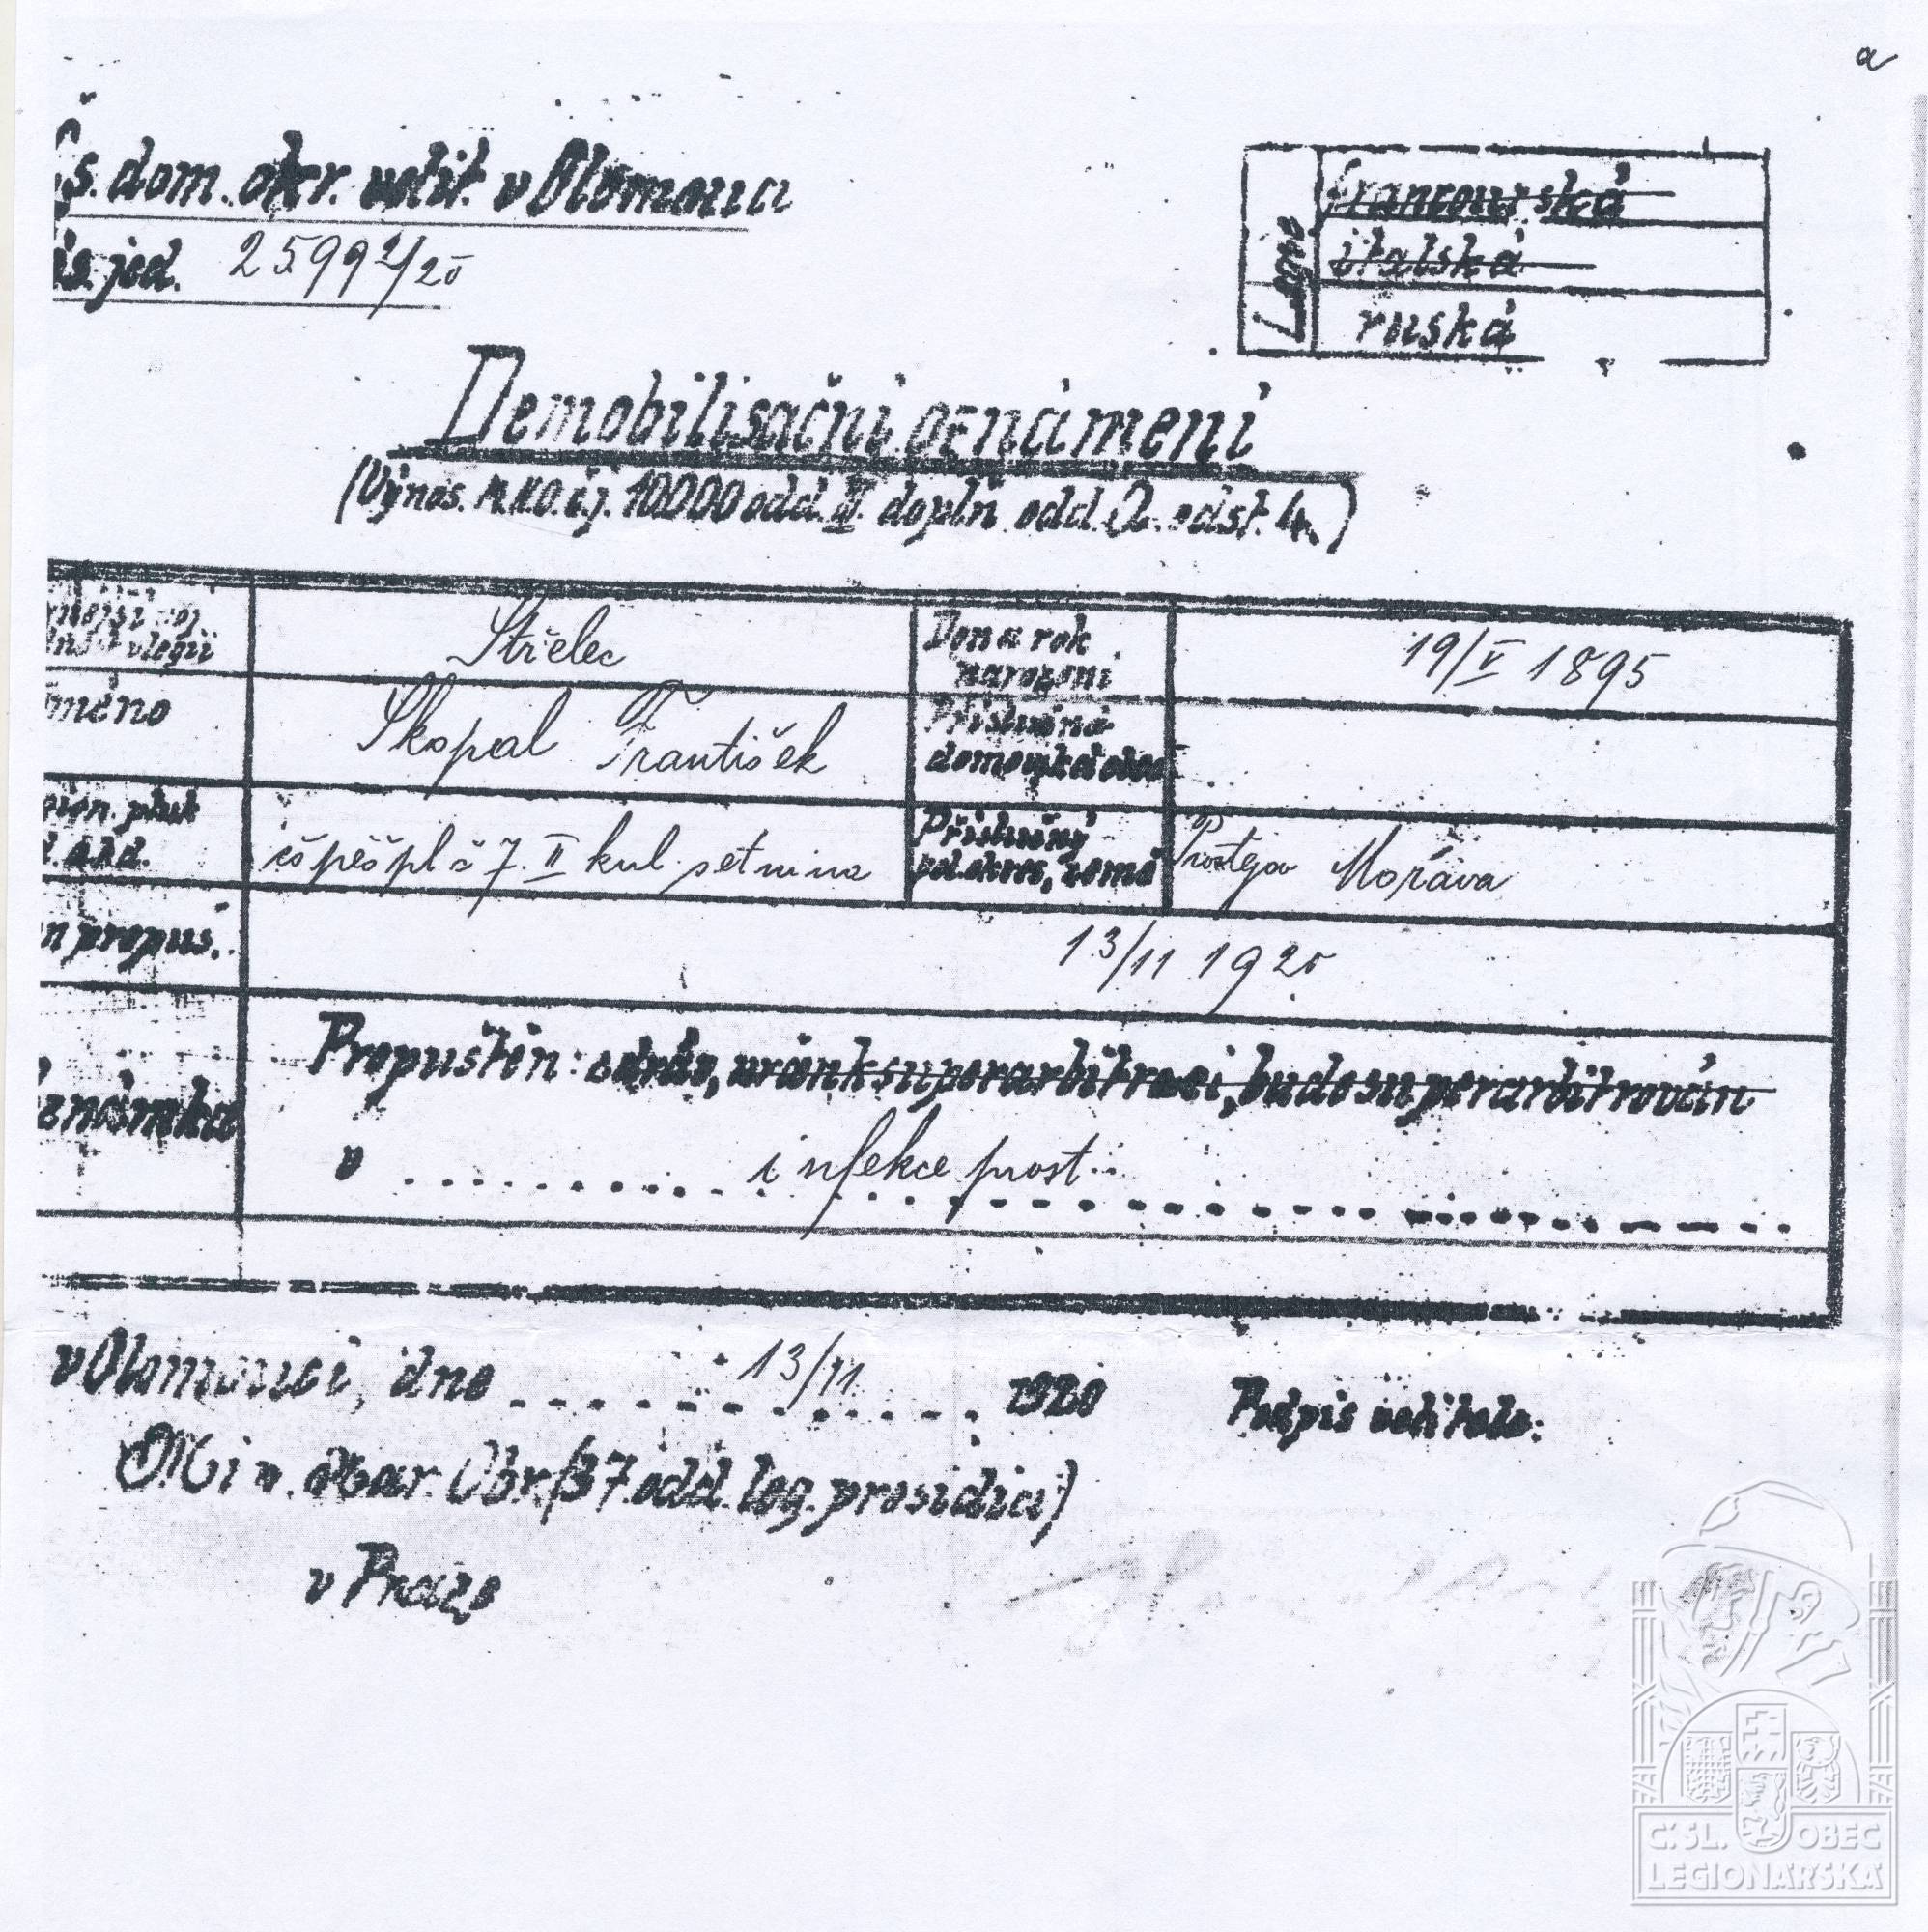 a
Čs. dom. okr. velit. v Olomouci
čís. jed. 25992/20
Legie
francouzská
italská
ruská
Demobilisační oznámení
(Výnos. M.N.O. č.j. 10.000 odd. IV. dopln. odd. 2. odst. 4.)
vlegii
Střelec
Den a rok
narození
19/V 1895
méno
Skopal František
Příslušná
domovská obec
pluk
a.t.d.
čš pěš pl č 7. II kul. setnina
Příslušný
pol. okres, země
Prostějov Morava
n propuš.
13/11 1920
známka
Propuštěn: zdráv, uzánk superarbitraci, bude superarbitrován
v infekce prost
v Olomouci, dne 13/11 1920 Podpis velitele:
Min. Nár. Obr. (37. odd. leg. presidia)
v Praze
Č. SL. OBEC
LEGIONÁŘSKÁ